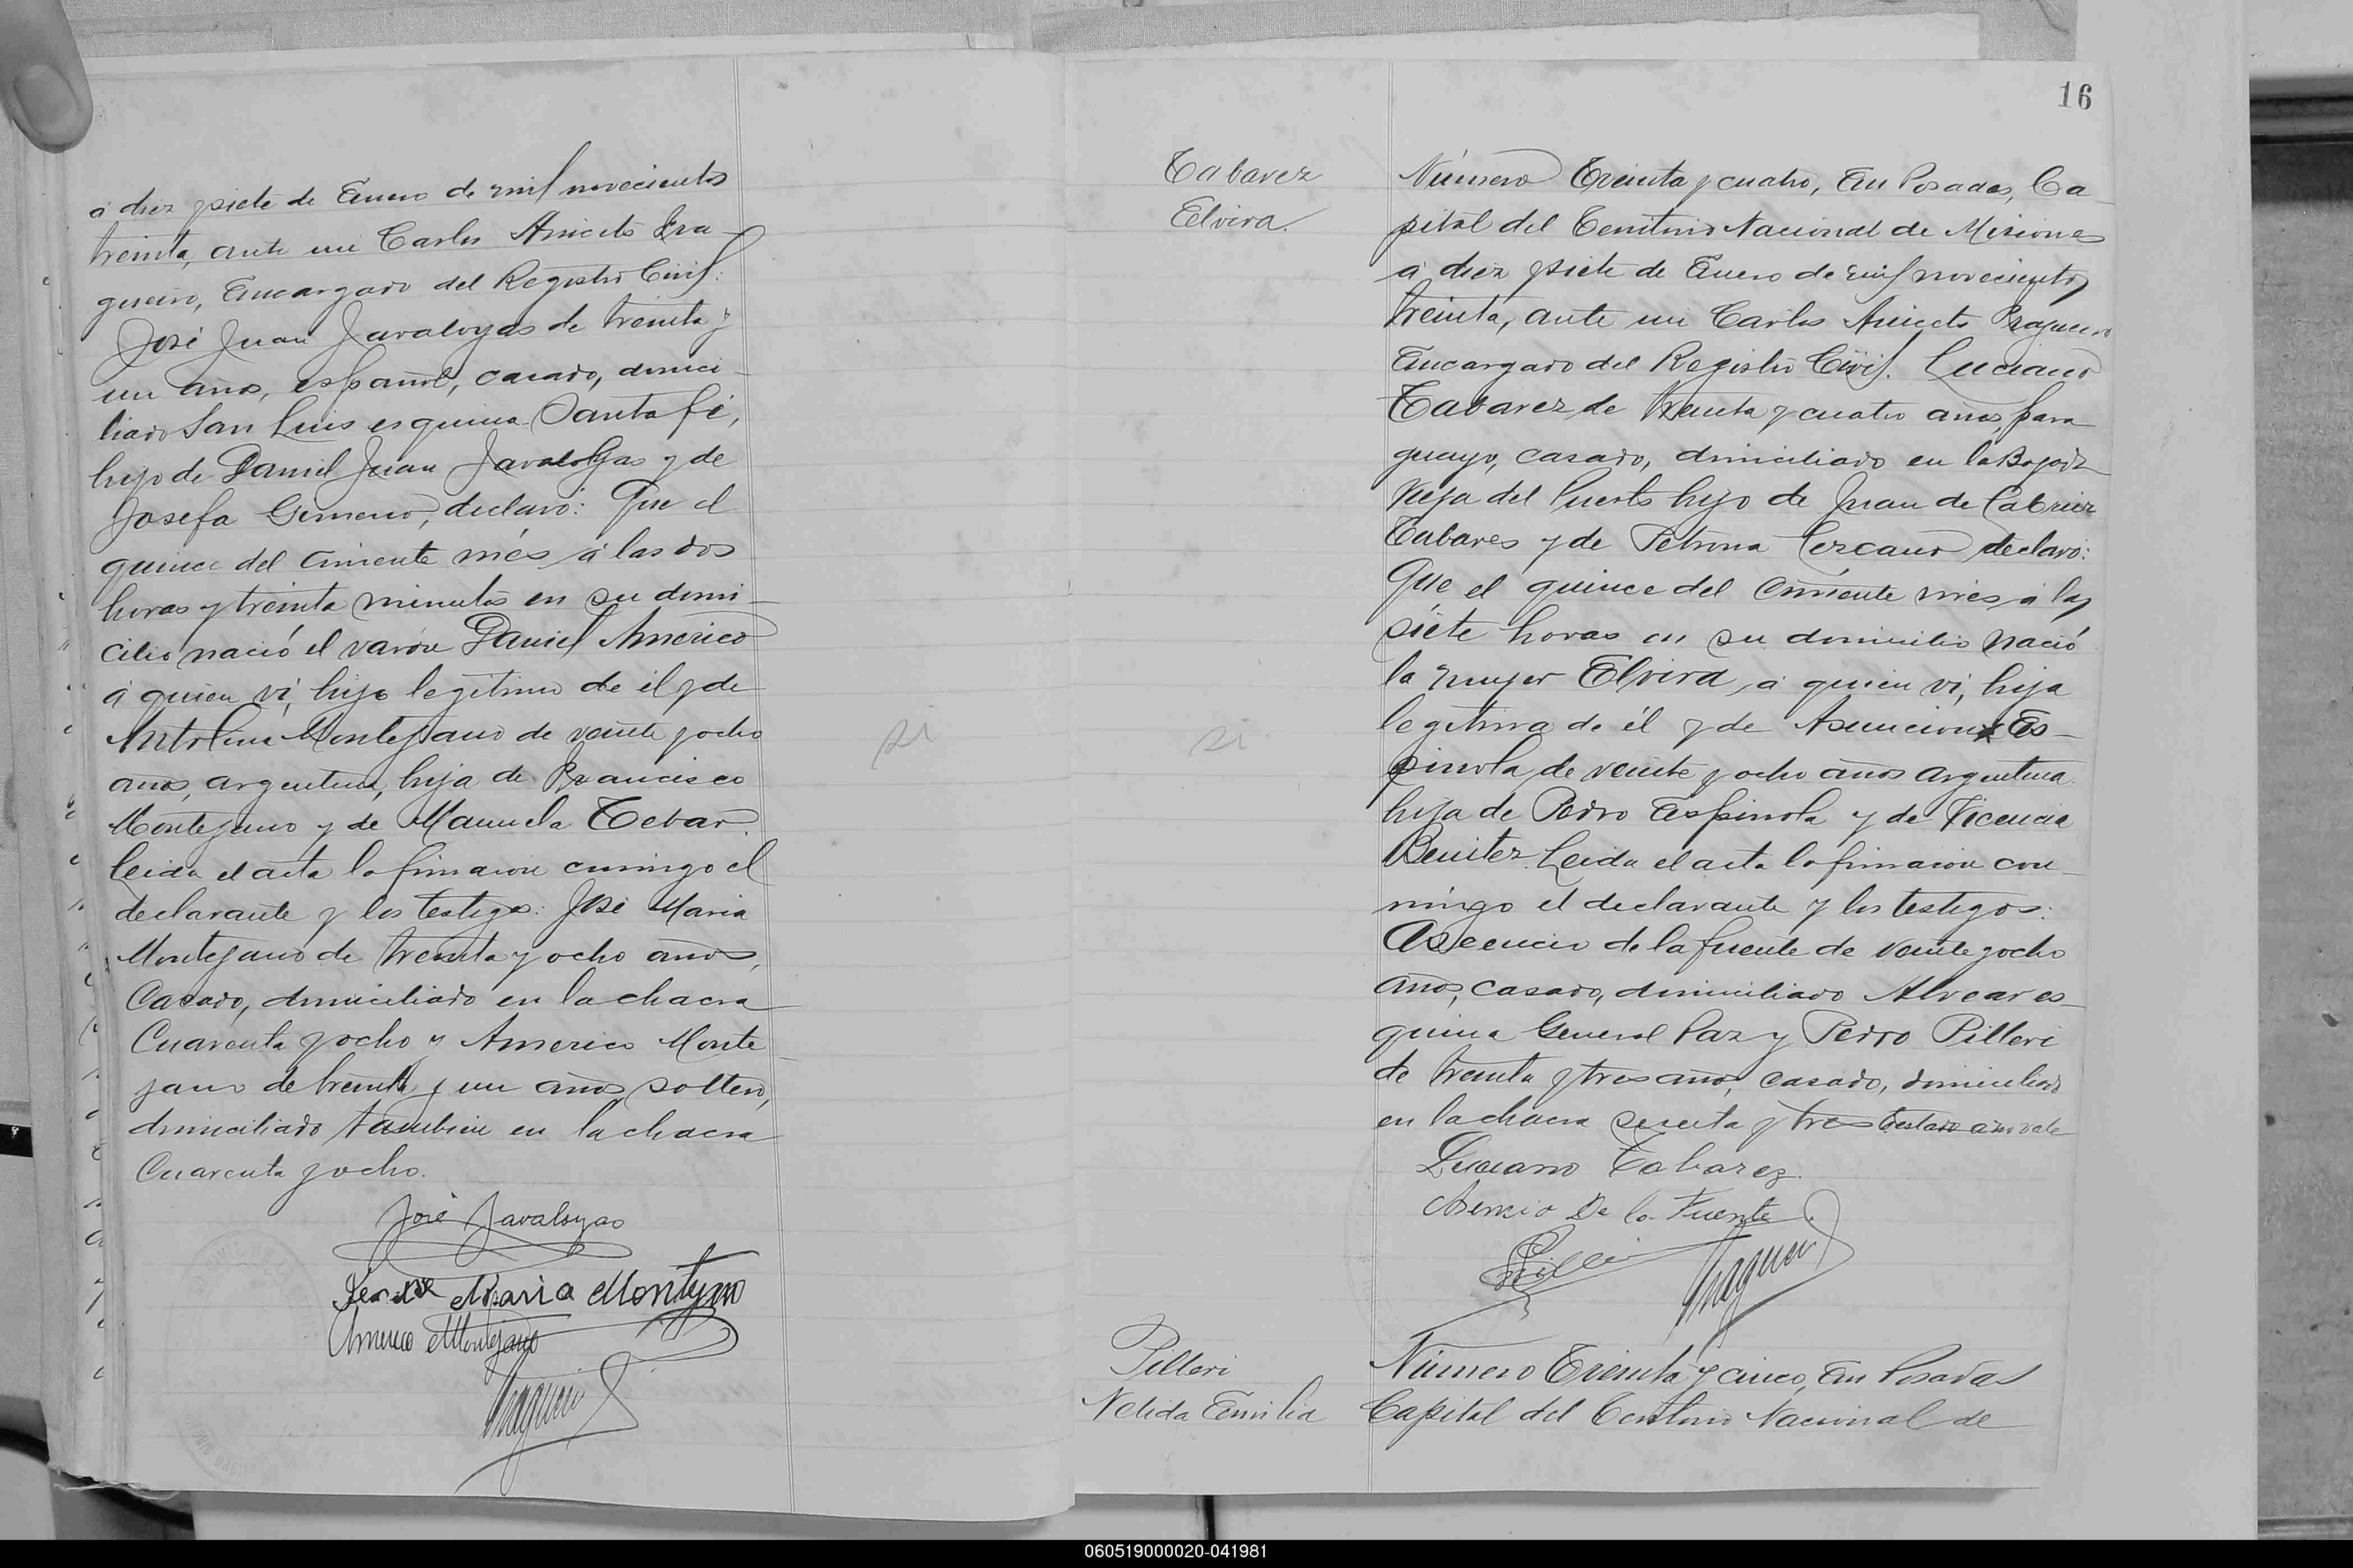 á diez y siete de Enero de mil novecientos
treinta, ante mi Carlos Aniceto Fra-
gueiro, Encargado del Registro Civil:
José Juan Javaloyas de treinta y
un años, español, casado, domici-
liado San Luis esquina Santa fé,
hijo de Daniel Juan Javaloyas y de
Josefa Gimeno, declaró: Que el
quince del corriente més á las dos
horas y treinta minutos en su domi-
cilio nació el varón Daniel Américo
á quien ví, hijo legítimo de él y de
Antolina Montejano de veinte y ocho
años, argentina, hija de Francisco
Montejano y de Manuela Tebar.
Leida el acta la firmaron conmigo el
declarante y los testigos: José Maria
Montejano de treinta y ocho años,
Casado, domiciliado en la chacra
Cuarenta y ocho y Americo Monte
jano de treinta y un años, soltero,
domiciliado tambien en la chacra
Cuarenta y ocho.
José Javaloyas
Maria Montejano
Americo Montejano
Fragueiro
si
16
Tabarez
Elvira.
Número Treinta y cuatro, En Posadas, Ca-
pital del Territorio Nacional de Misiones
á diez y siete de Enero de mil novecientos
treinta, ante mi Carlos Aniceto Fragueiro
Encargado del Registro Civil. Luciano
Tabarez de treinta y cuatro años, para
guayo, casado, domiciliado en la Bajada
Vieja del Puerto hijo de Juan de
Tabares y de Petrona Lezcano declaró:
Que el quince del corriente més á las
siete horas en su domicilio nació
la mujer Elvira, á quien ví, hija
legitima de él y de Asuncion Es-
pinola de veinte y ocho años argentina
hija de Pedro Espinola y de Vicencia
Benitez. Leida el acta la firmaron con-
migo el declarante y los testigos:
Asencio de la fuente de veinte y ocho
años, casado, domiciliado Alvear es-
quina General Paz y Pedro Pilleri
de treinta y tres años, casado, domiciliado
en la chacra sesenta y tres testado a no vale
si
Luciano Tabarez.
Asencio De la Fuente
Pilleri
Fragueiro
Pilleri
Nelida Emilia
Número Treinta y cinco, En Posadas
Capital del Territorio Nacional de
060519000020-041981